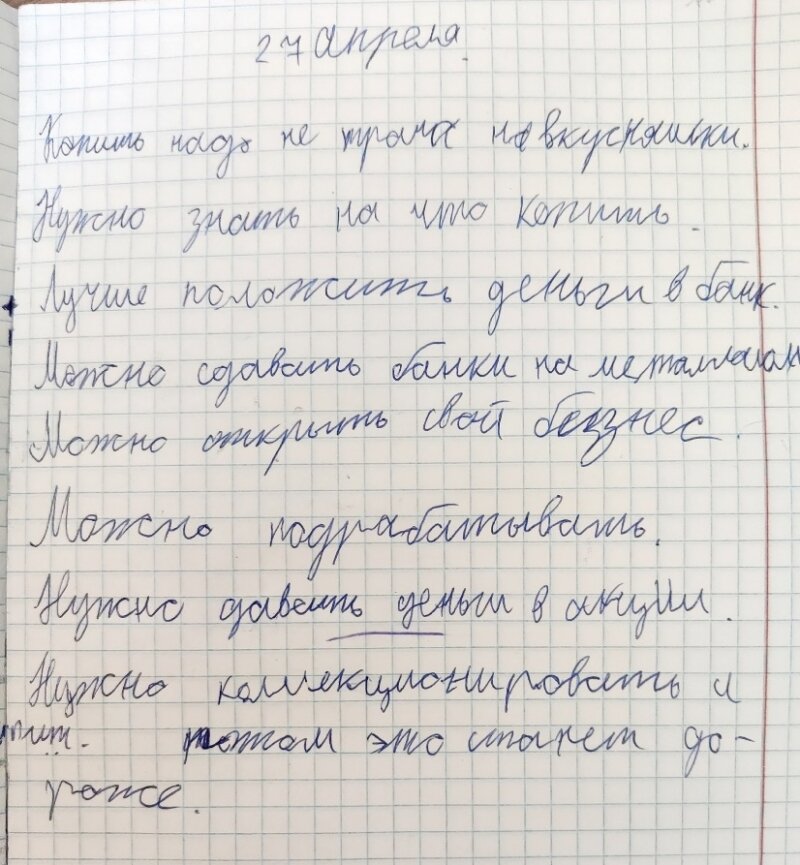 27 апреля.
Копить надо не трача на вкусняшки.
Нужно знать на что копить.
Лучше положить деньги в банк.
Можно сдавать банки на металлолом
Можно открыть свой бизнес.
Можно подрабатывать.
Нужно давать деньги в акции.
Нужно коллекционировать и
потом это станет до-
роже.